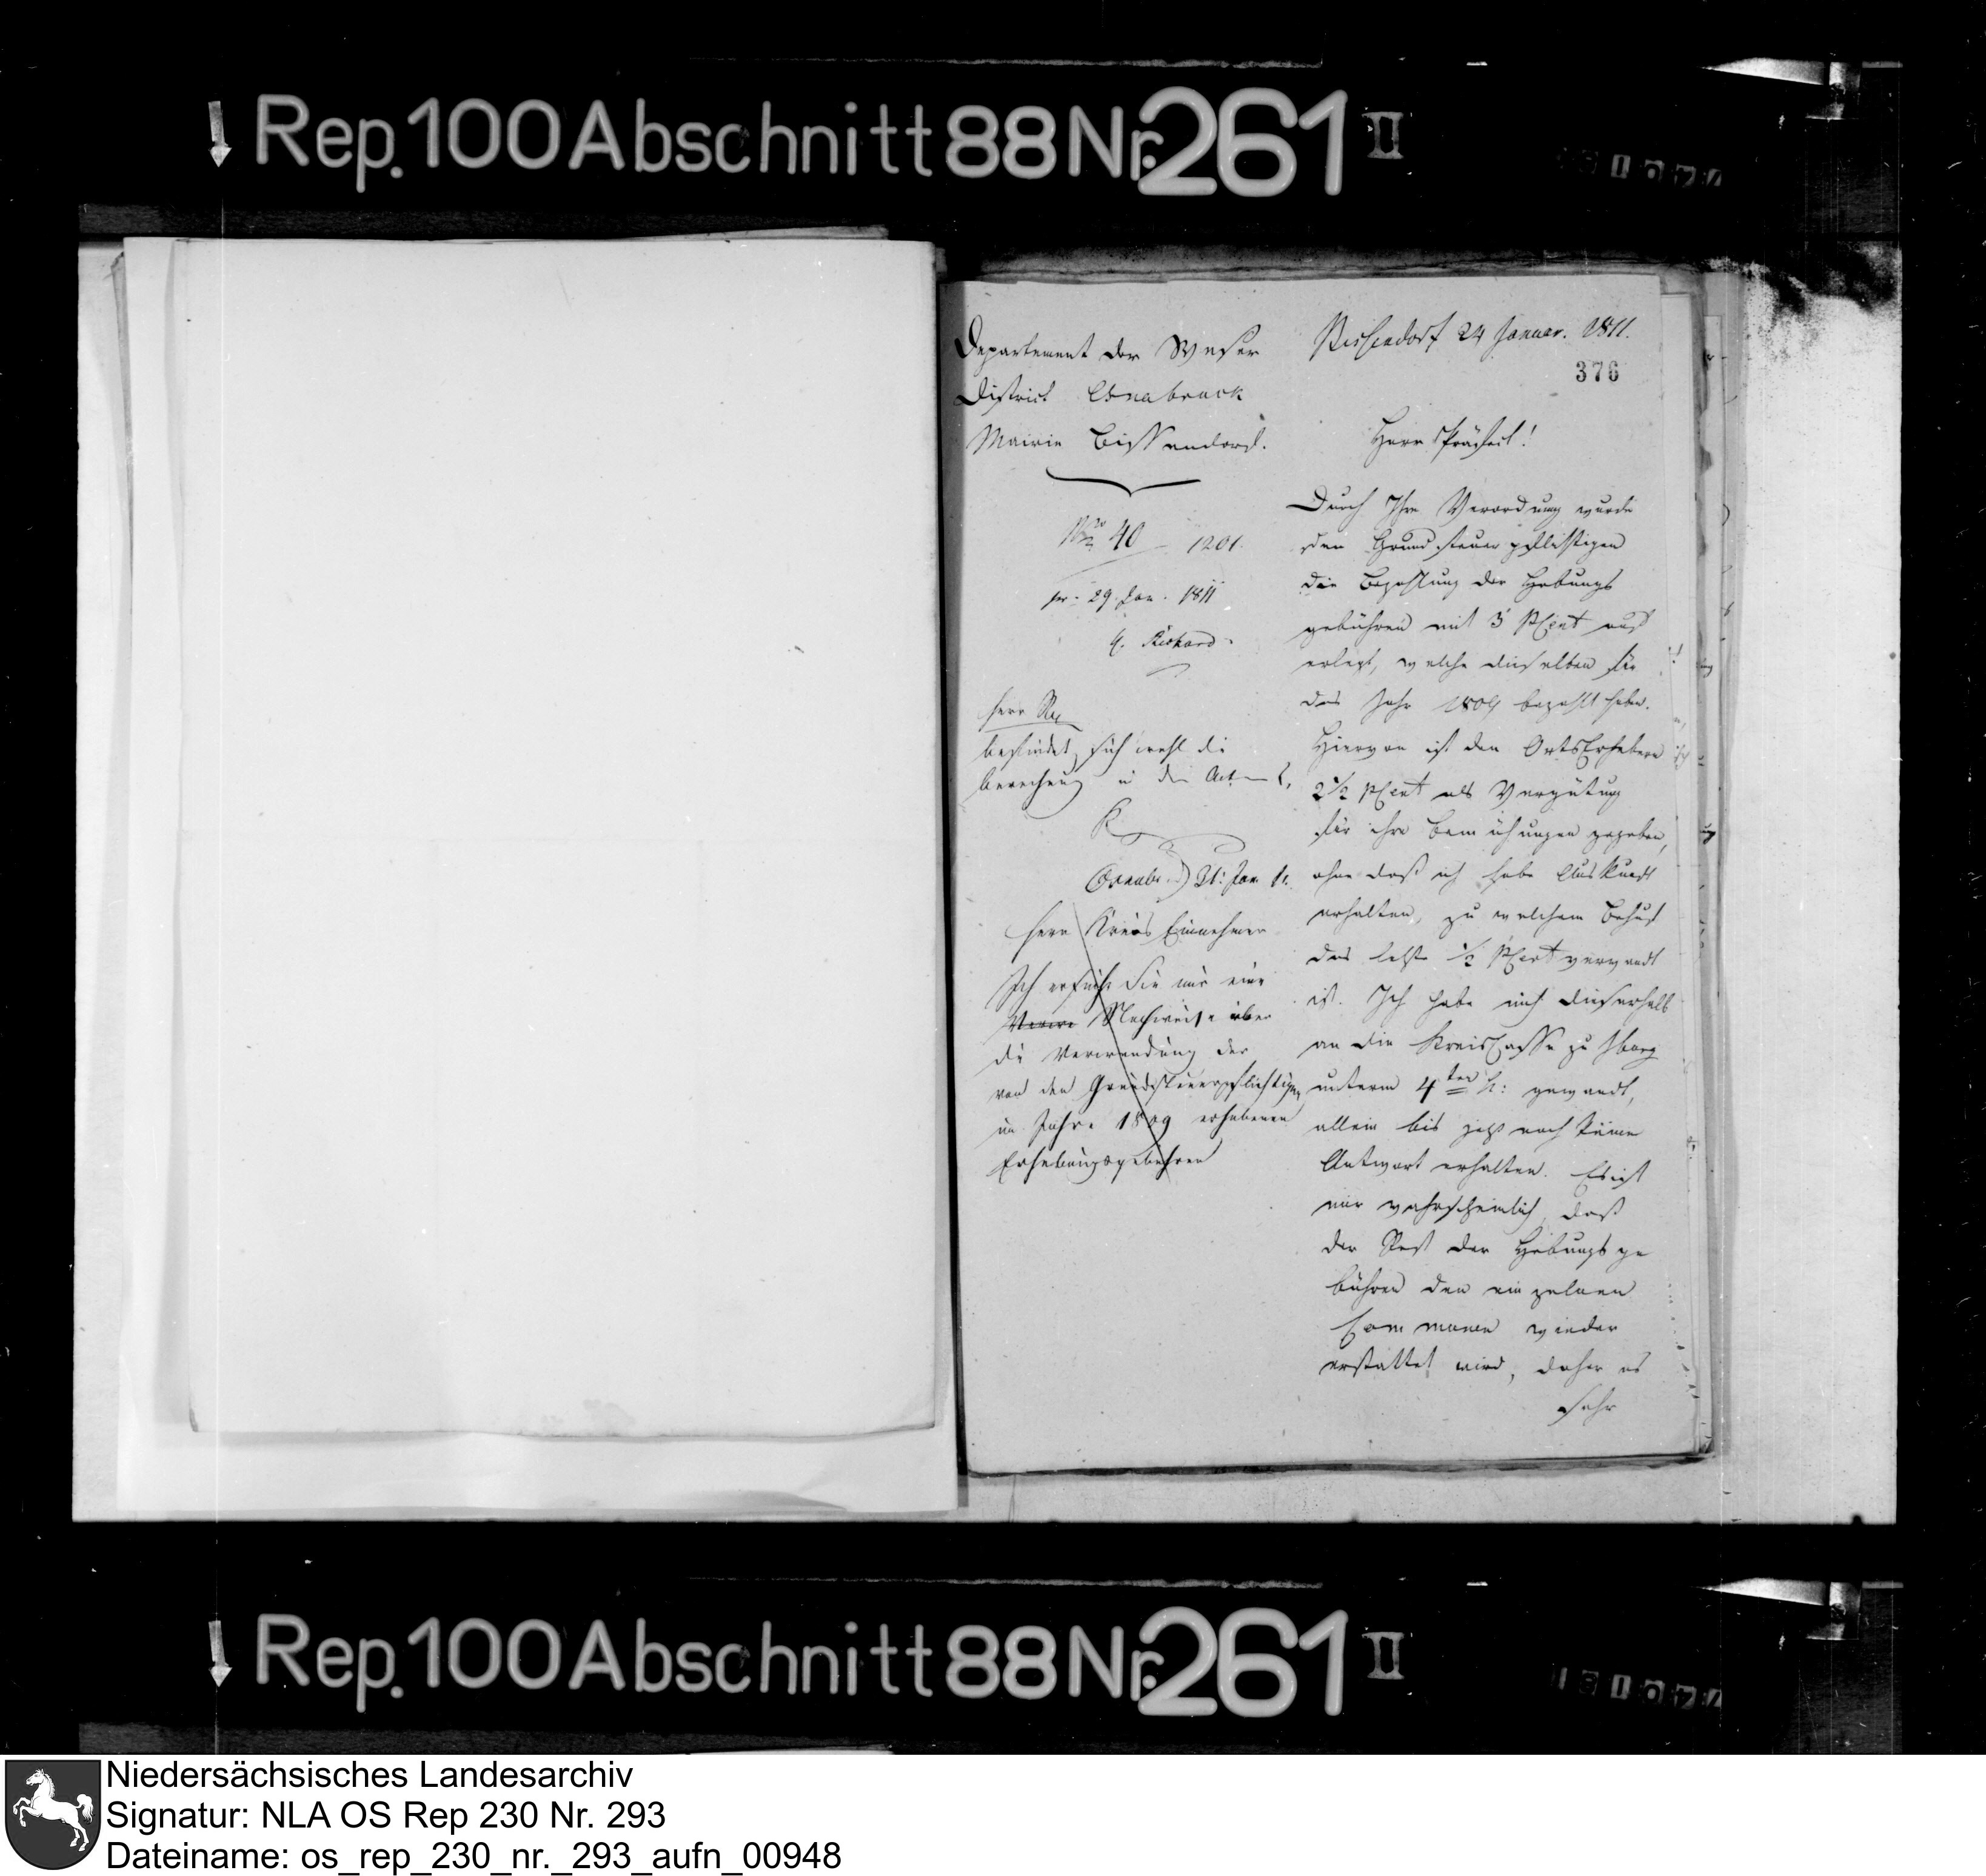 Rep. 100 Abschnitt 88 Nr. 261 II
Departement der Weser
District Osnabruck
Mairie Bissendorf.
Nro 40 1201.
pr. 29. Jan. 1811
Herr
befindet sich wohl die
berechnung in den
Osnabr 31. Jan 11.
Herr Kreis Einnehmer
Ich ersuche Sie mir eine
Nachweise über
die Verwendung der
von den Grundsteuerpflichtigen
im Jahre 1809 erhobenen
Erhebungsgebühren
Bissendorf 24 Januar. 1811.
376
Herr Präfect!
Durch Ihre Verordnung wurde
den Grundsteuerpflichtigen
die Bezahlung der Hebungs
gebühren mit 3 PCent auf
erlegt, welche dieselben für
das Jahr 1809 bezahlt haben.
Hiervon ist den OrtsErhebern
2½ PCent als Vergütung
für ihre Bemühungen gegeben,
ohne daß ich habe Auskunft
erhalten, zu welchem Behuf
das letzte ½ PCent verwandt
ist. Ich habe mich dieserhalb
an die KreisCasse zu Iburg
unterm 4ten gewandt,
allein bis jetzt noch keine
Antwort erhalten. Es ist
mir wahrscheinlich, daß
der Rest der Hebungsge
bühren den einzelnen
Communen wieder
erstattet wird, daher es
sehr
Rep. 100 Abschnitt 88 Nr. 261 II
Niedersächsisches Landesarchiv
Signatur: NLA OS Rep 230 Nr. 293
Dateiname: os_rep_230_nr._293_aufn_00948